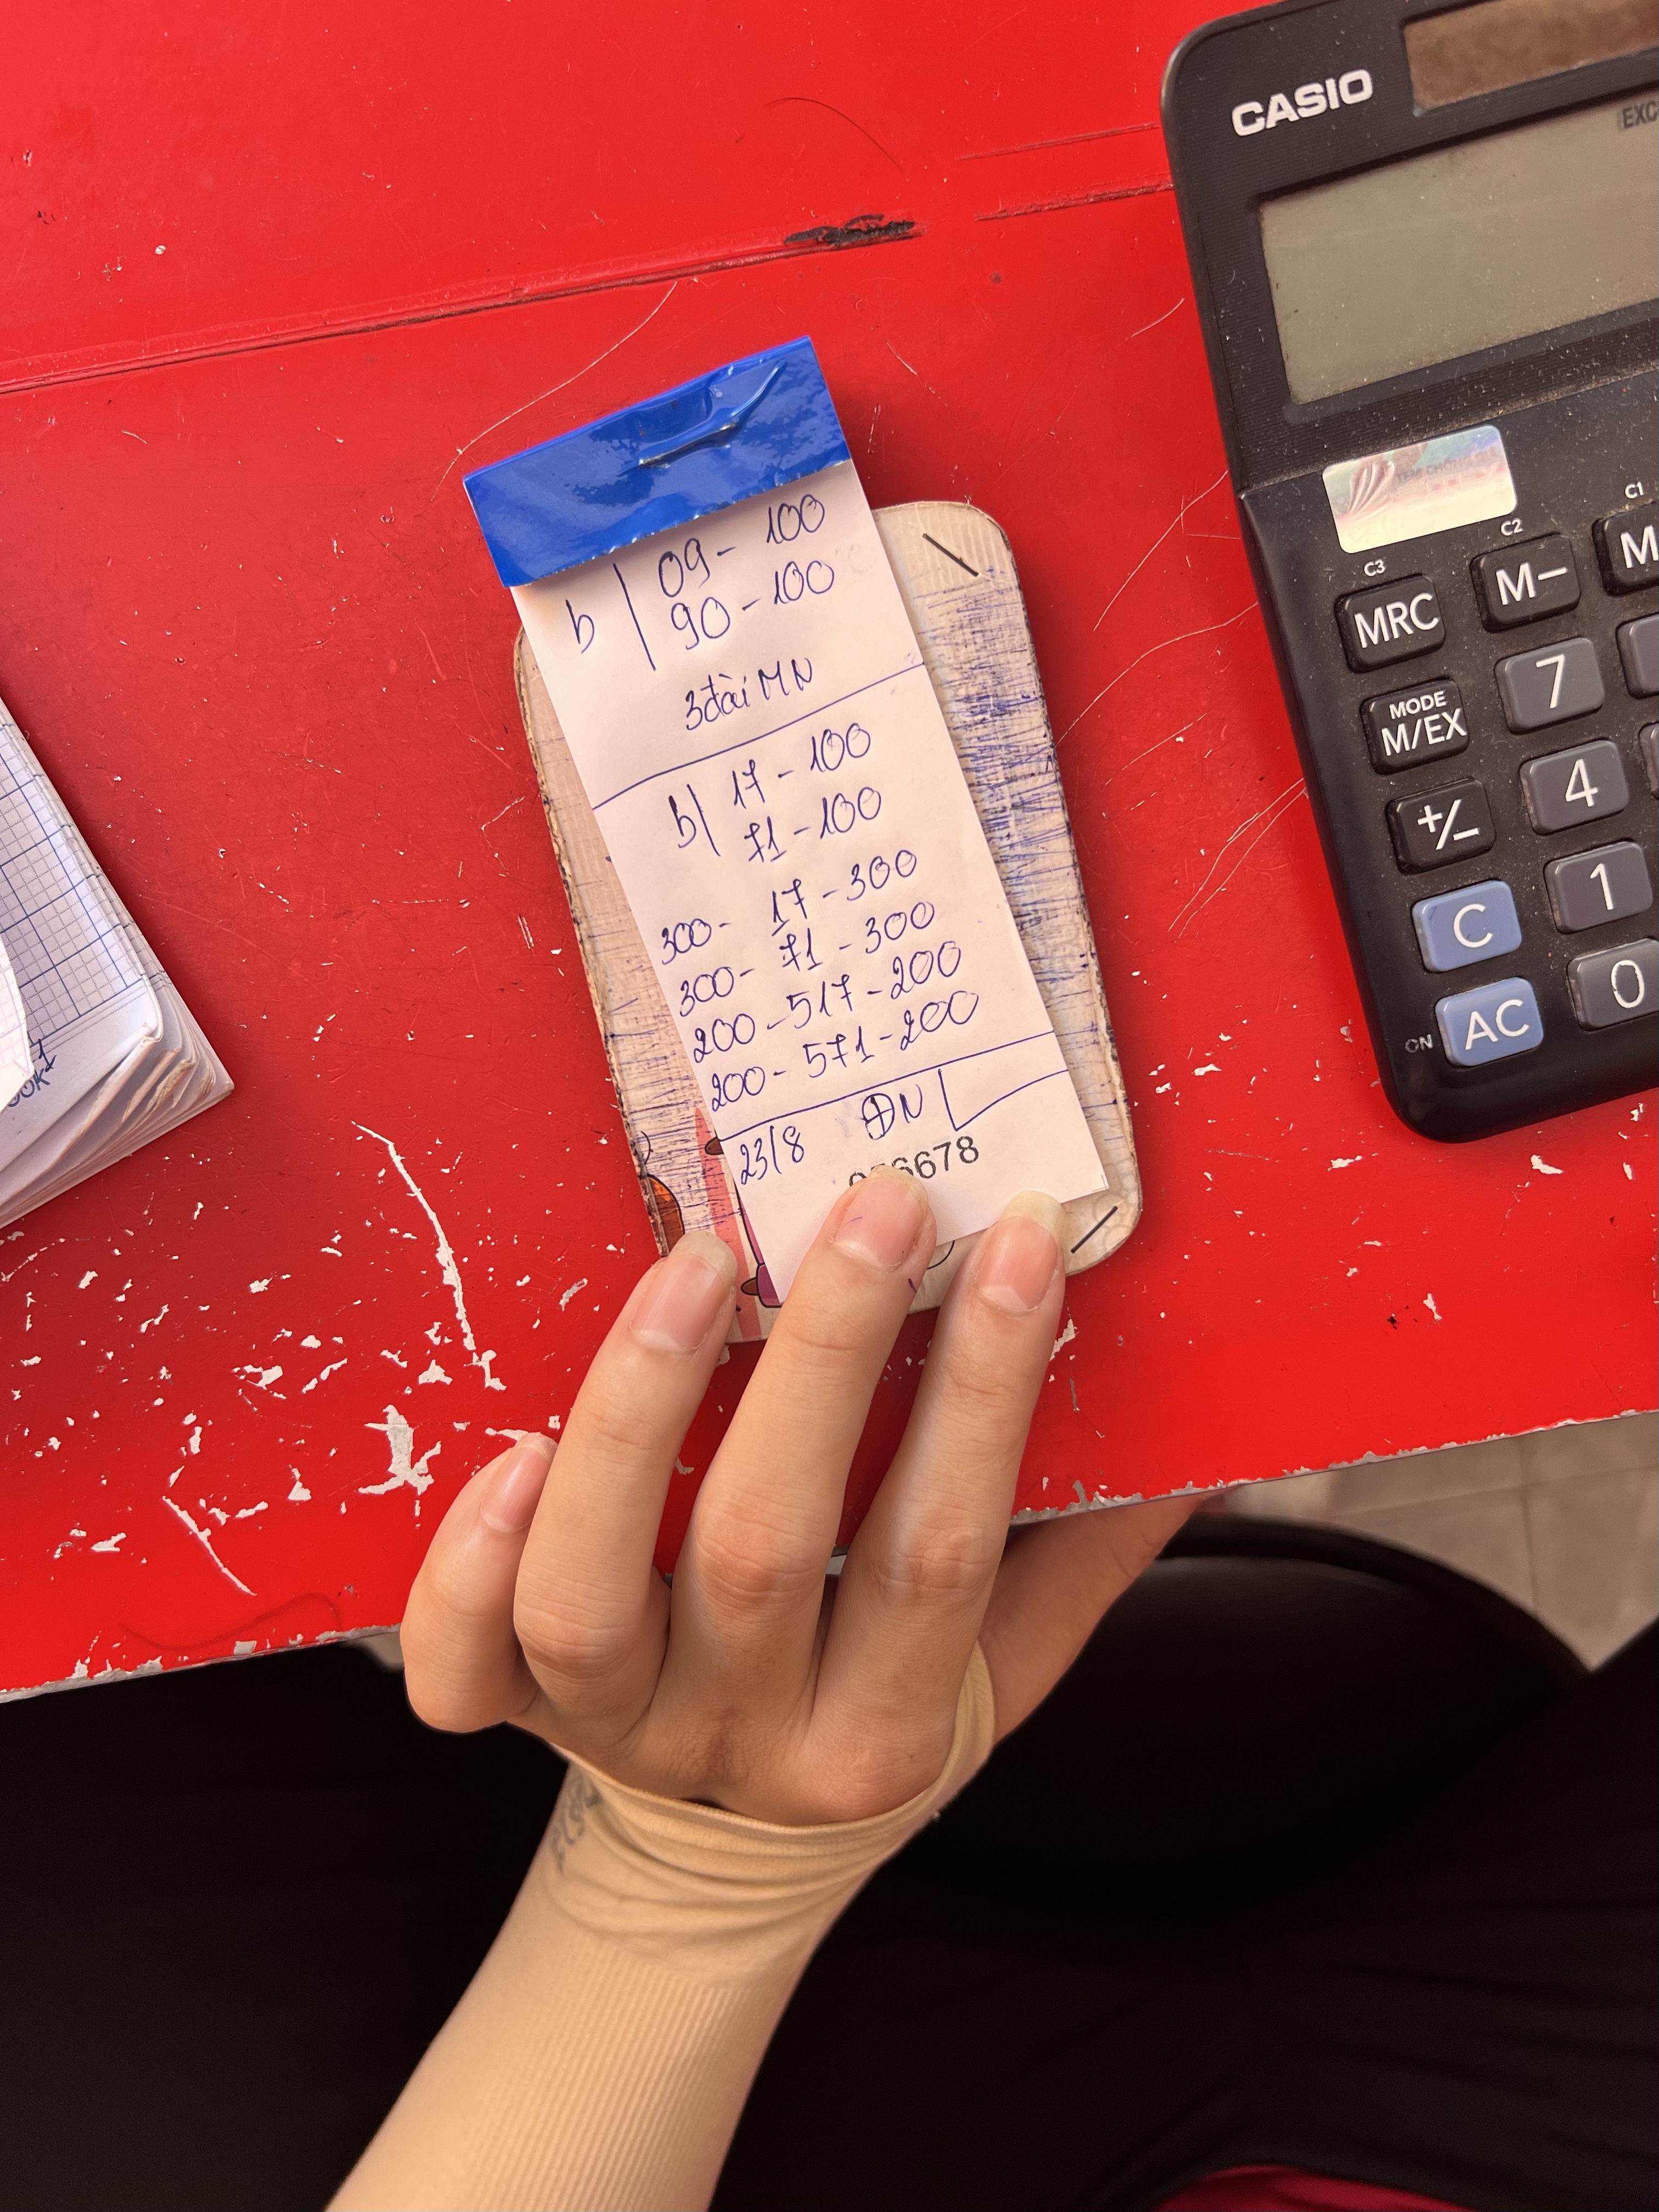 b | 09 - 100
90 - 100
3 đài MN
b | 17 - 100
71 - 100
300 - 17 - 300
300 - 71 - 300
200 - 517 - 200
200 - 571 - 200
23/8 ⊕N
6678
CASIO
EXC
TEM CHỐNG GIẢ
C1
C2
C3
M
M−
MRC
7
MODE
M/EX
4
+/−
1
C
0
ON AC